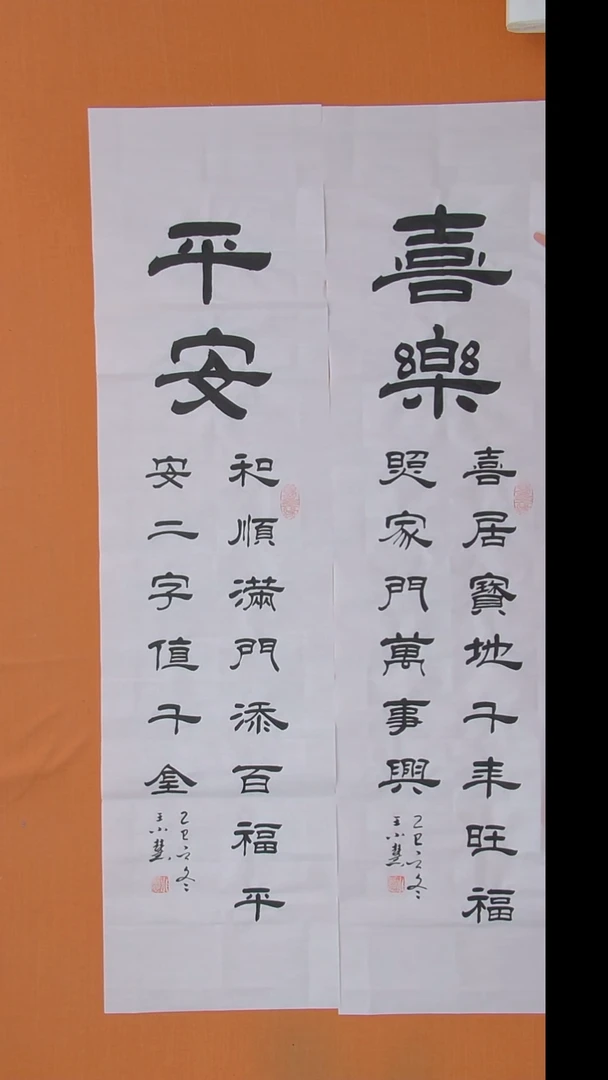 喜樂
喜居寶地千年旺福
照家門萬事興
乙巳立冬
王小慧
平安
和順滿門添百福平
安二字值千金
乙巳立冬
王小慧